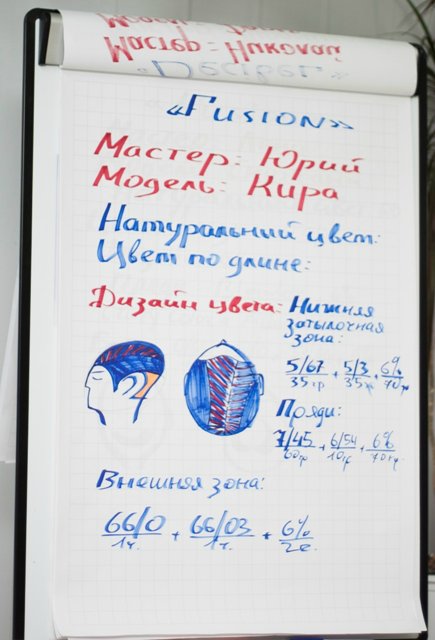 Мастер = Николай
«Fusion»
Мастер: Юрий
Модель: Кира
Натуральный цвет:
Цвет по длине:
Дизайн цвета:
Нижняя
затылочная
зона:
5/67 + 5/3 + 6%
35гр 35гр 70гр
Пряди:
7/45 + 6/54 + 6%
60гр 10гр 70гр
Внешняя зона:
66/0 + 66/03 + 6%
1ч. 1ч. 2ч.